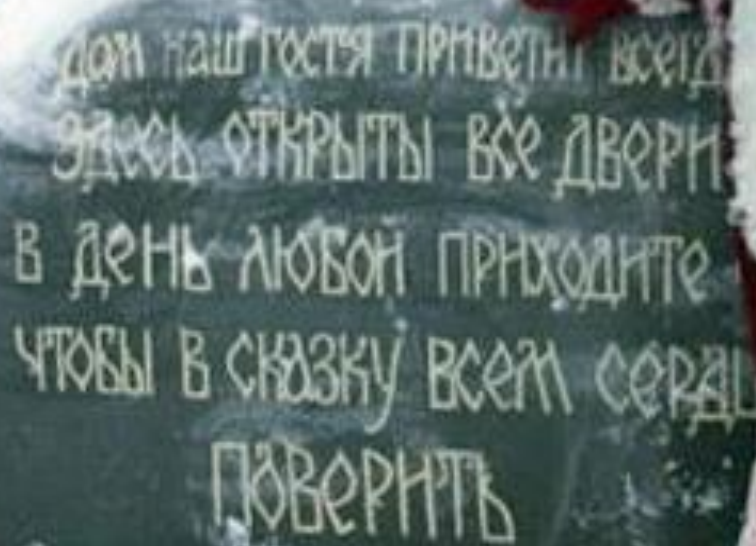 ДОМ НАШ ГОСТЯ ПРИВЕТИТ ВСЕГД
ЗДЕСЬ ОТКРЫТЫ ВСЕ ДВЕРИ
В ДЕНЬ ЛЮБОЙ ПРИХОДИТЕ
ЧТОБЫ В СКАЗКУ ВСЕМ СЕРДЦ
ПОВЕРИТЬ